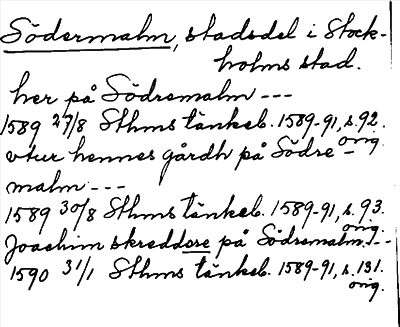 Södermalm, stadsdel i Stock-
holms stad.
her på Södremalm ---
1589 27/8 Sthms tänkeb. 1589-91, s. 92.
orig.
vtur hennes gårdh på Södre-
malm ---
1589 30/8 Sthms tänkeb. 1589-91, s. 93.
orig.
Joachim skreddere på Södremalm ---
1590 31/1 Sthms tänkeb. 1589-91, s. 131.
orig.